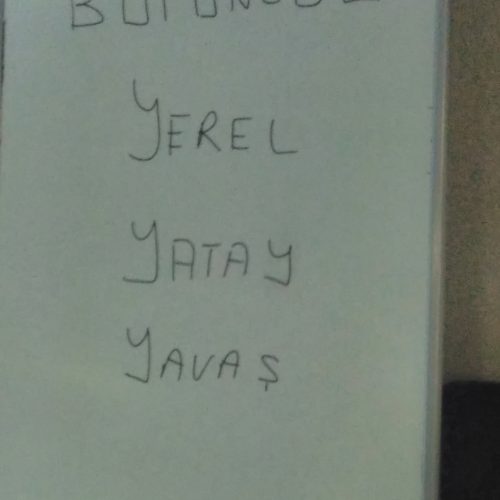 YEREL
YATAY
YAVAŞ